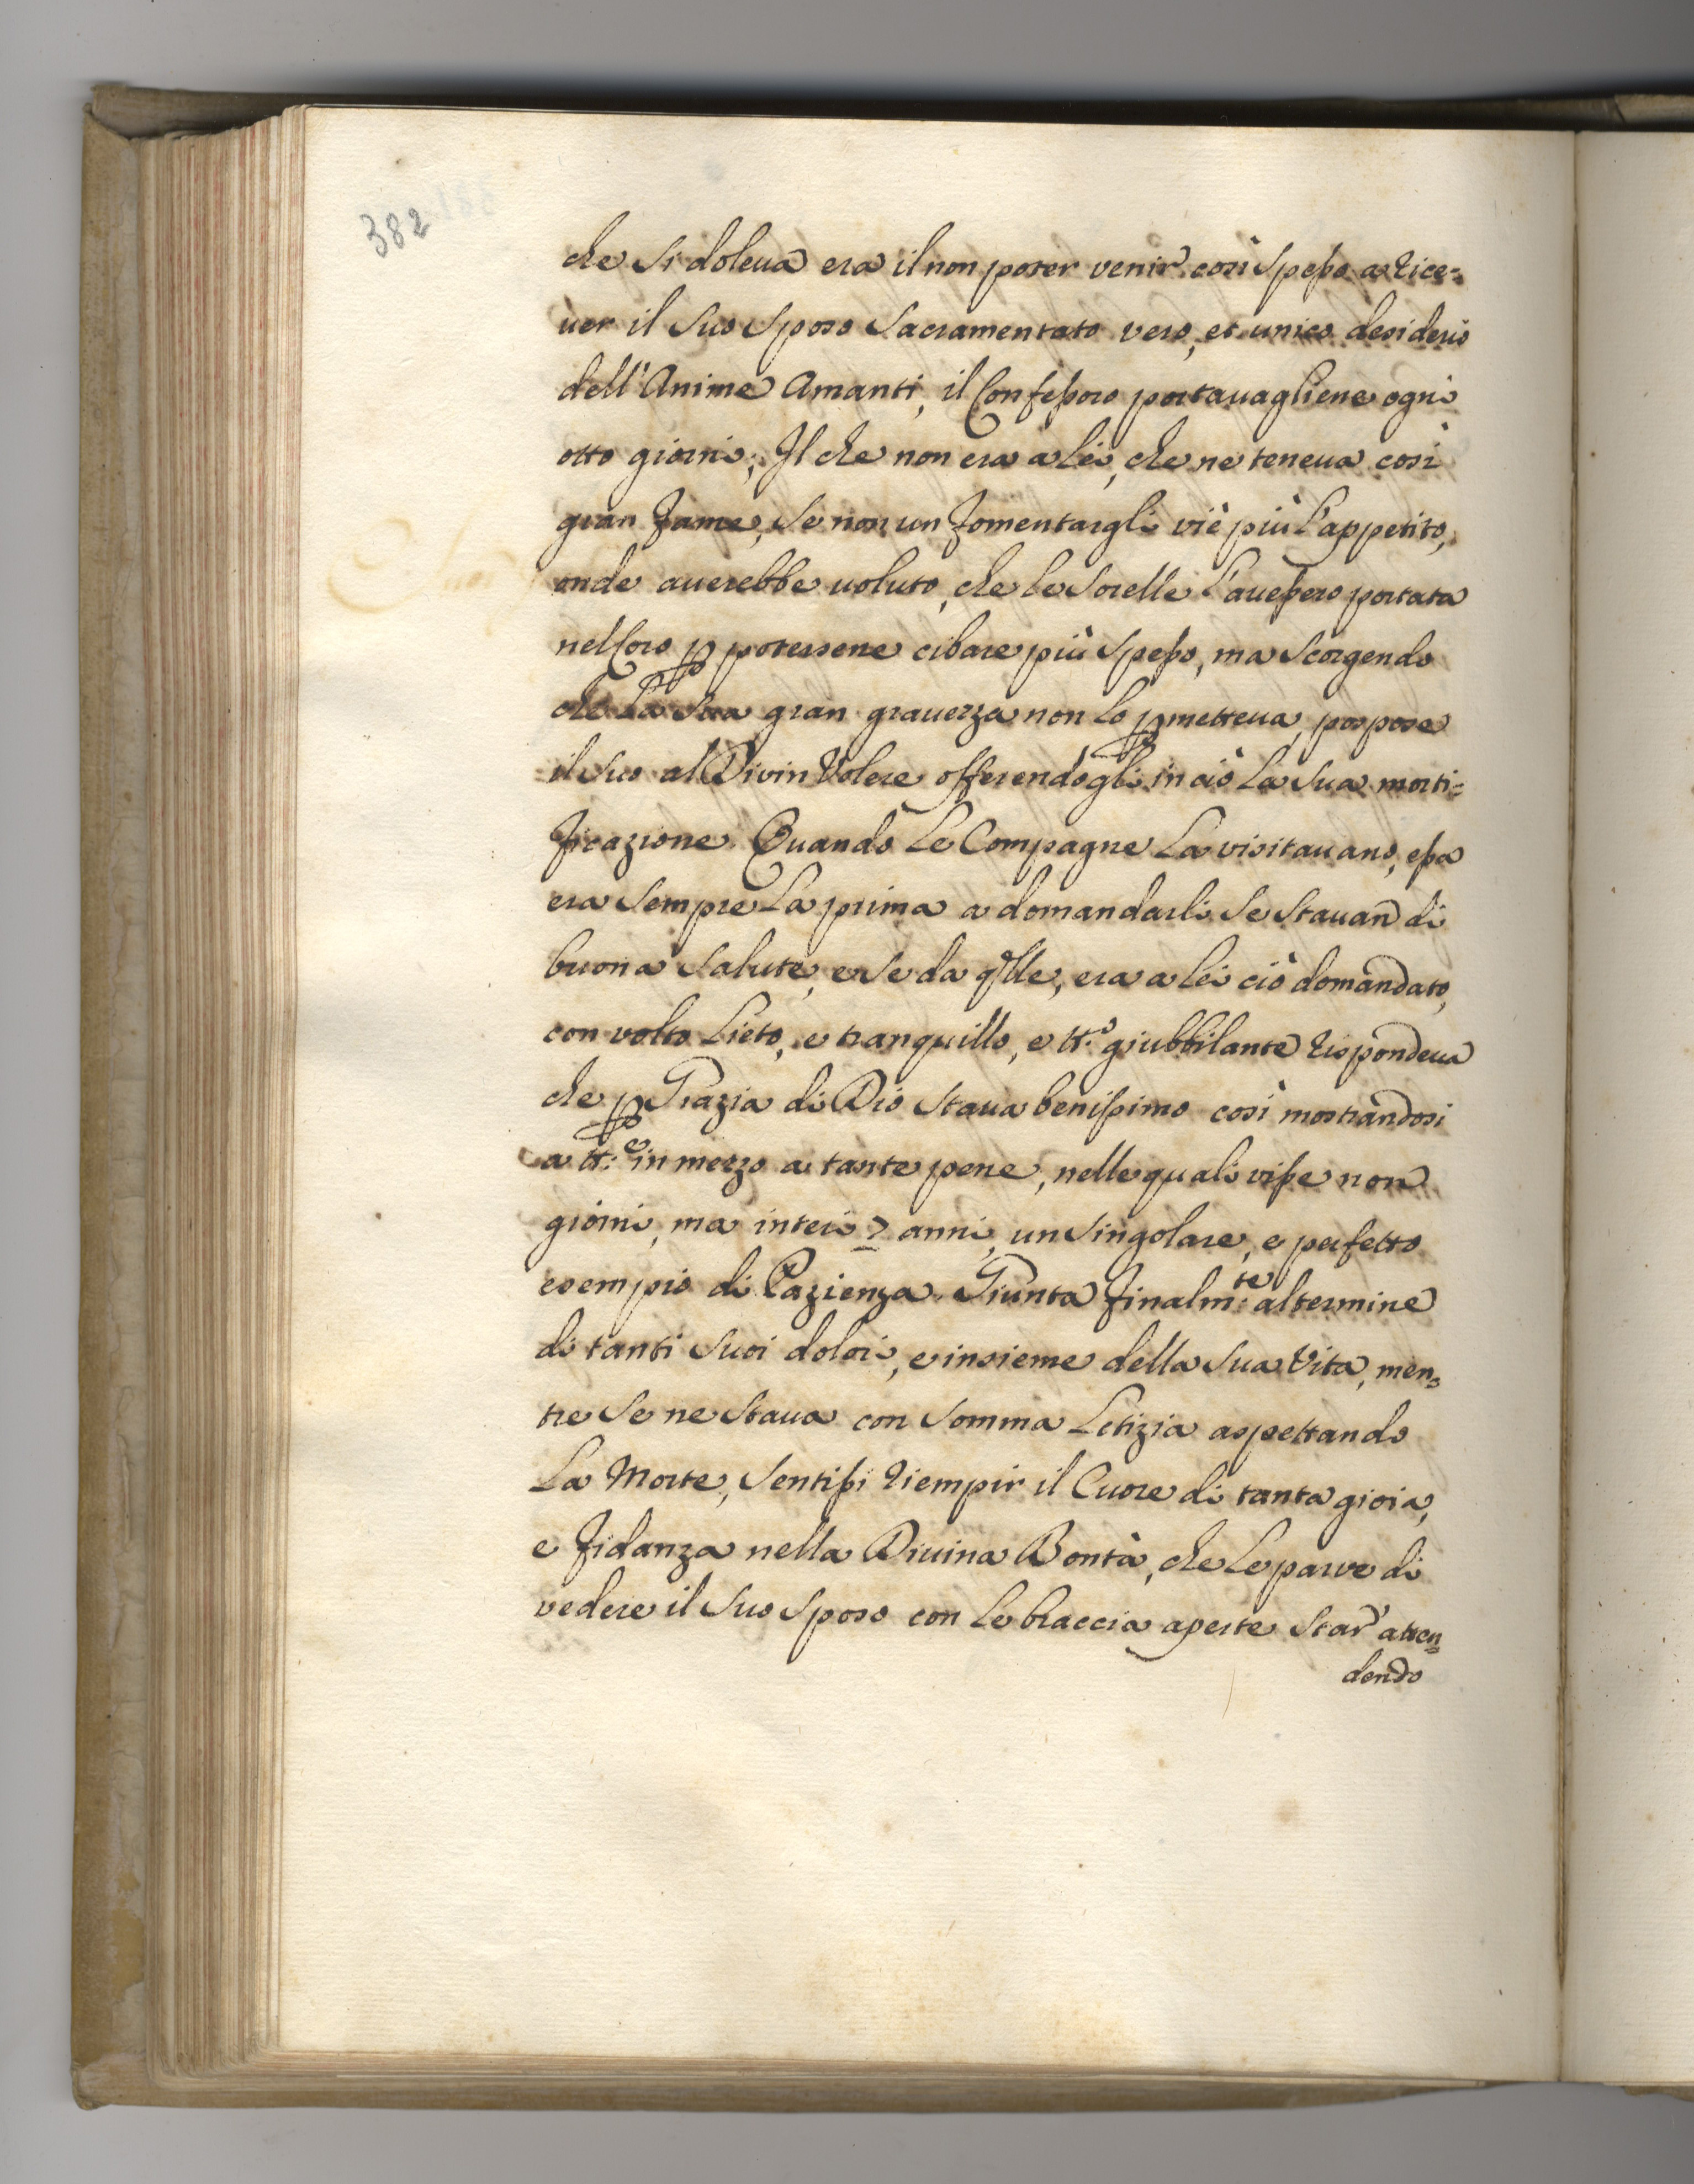 382
che si doleua era il non poter venir così spesso a rice=
uer il suo sposo Sacramentato vero, et unico desiderio
dell'Anime Amanti, il Confessoro portauagliene ogni
otto giorni; Il che non era a lei, che ne teneua così
gran fame, se non un fomentargli viè più l'appetito,
onde auerebbe uoluto, che le sorelle l'auessero portata
nel Coro p potersene cibare più spesso, ma scorgendo
che la sua gran grauezza non lo pmetteua, pospose
il suo al Divin Volere offerendogli in ciò la sua morti=
ficazione. Quando le Compagne la visitauano, essa
era sempre la prima a domandarli se stauan di
buona salute, e se da qlle, era a lei ciò domandato,
con volto lieto, e tranquillo, e tt.º giubbilante rispondeua
che p Grazia di Dio staua benissimo così mostrandosi
a tt.e in mezzo a tante pene, nelle quali visse non
giorni, ma interi 7 anni, un singolare, e perfetto
esempio di Pazienza. Giunta finalm.te al termine
di tanti suoi dolori, e insieme della sua Vita, men=
tre se ne staua con somma letizia aspettando
la Morte, sentissi riempir il Cuore di tanta gioia,
e fidanza nella Diuina Bontà, che le parve di
vedere il suo sposo con le braccia aperte star' atten=
dendo